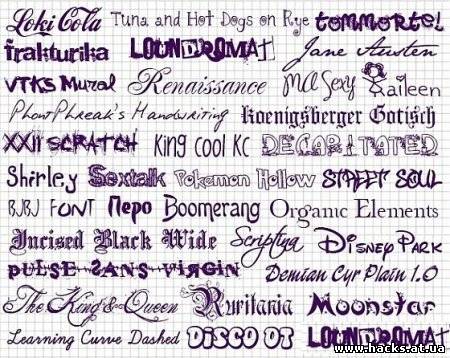 Loki Cola Tuna and Hot Dogs on Rye tommorte!
frakturika LOUNDROMAT Jane Austen
VTKS Mural Renaissance MA Sexy Raileen
PhontPhreak's Handwriting Koenigsberger Gotisch
XXII SCRATCH King Cool KC DECAPITATED
Shirley Sextalk Pokemon Hollow STREET SOUL
BJBJ FONT Перо Boomerang Organic Elements
Incised Black Wide Scriptina Disney Park
PULSE SANS VIRGIN Demian Cyr Plain 1.0
The King & Queen Ruritania Moonstar
Learning Curve Dashed DISCO OT LOUNDROMAT
www.hacks.at.ua